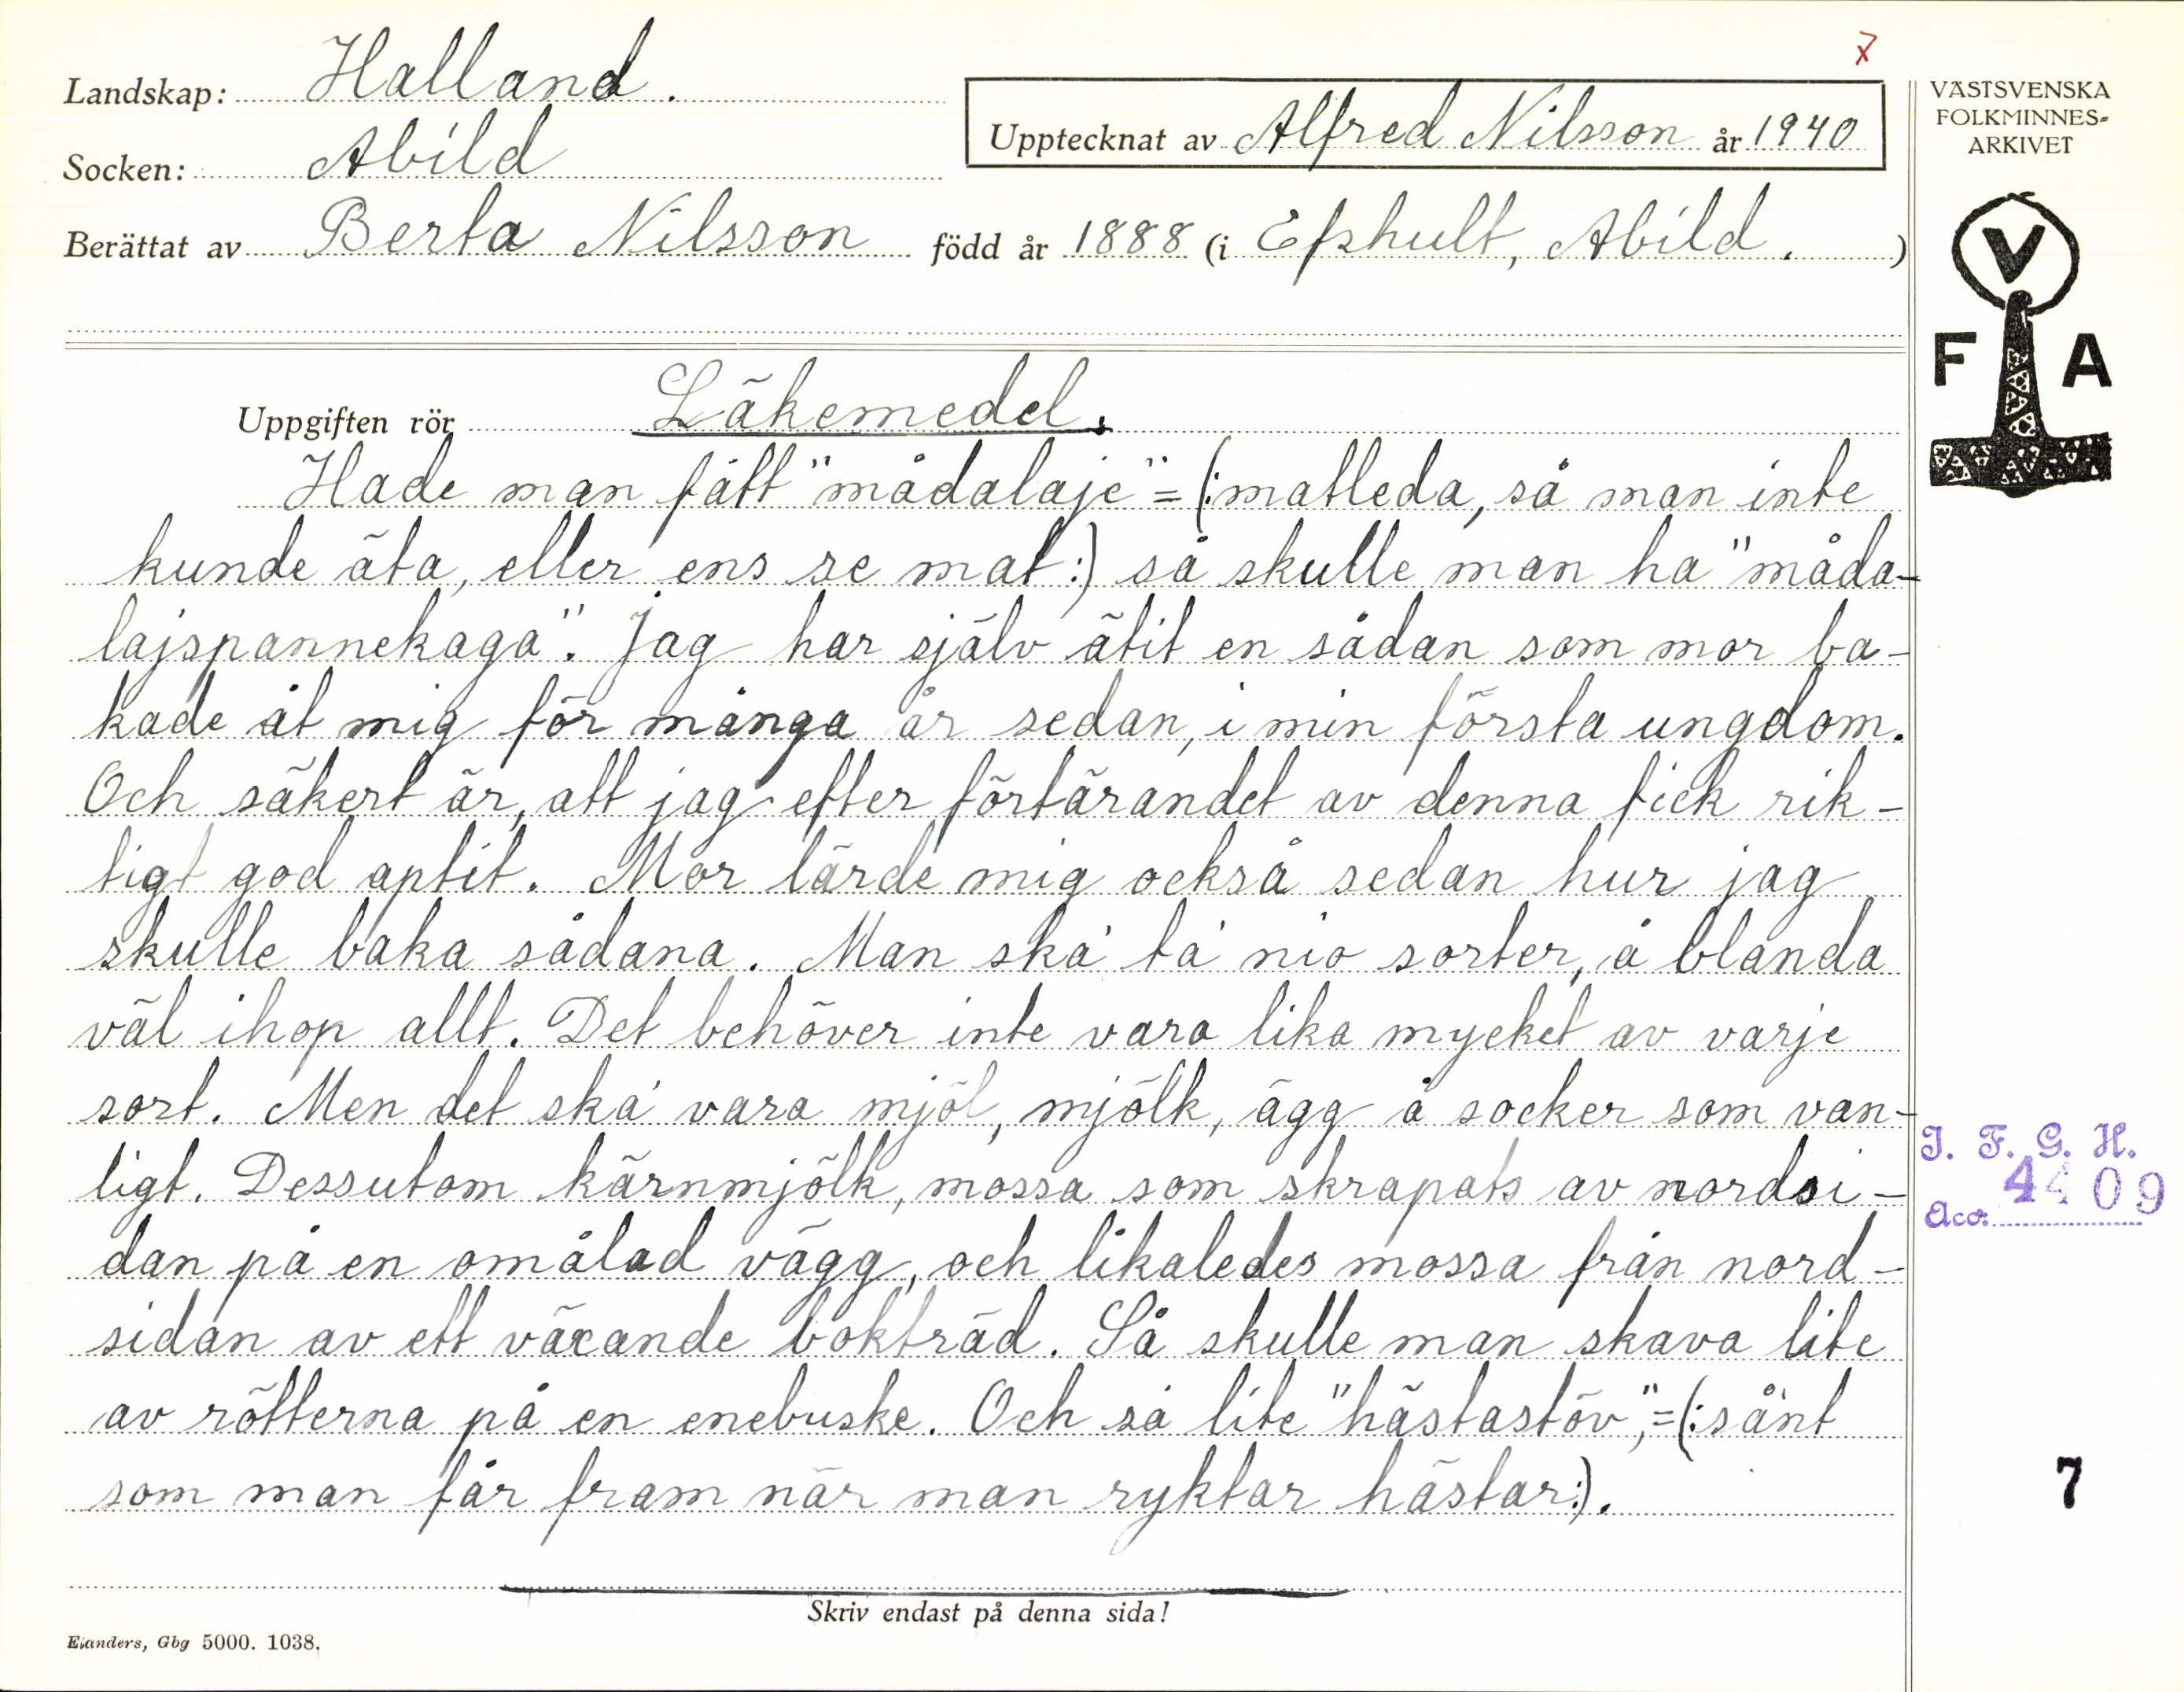 7
Landskap: Halland.
Upptecknat av Alfred Nilsson år 1940
VÄSTSVENSKA
FOLKMINNES-
ARKIVET
Socken: Abild
Berättat av Berta Nilsson född år 1888 (i Efshult, Abild.)
V
F A
Uppgiften rör Läkemedel.
Hade man fått "mådalaje" = (:matleda, så man inte
kunde äta, eller ens se mat:) så skulle man ha "måda-
lajspannekaga". Jag har själv ätit en sådan som mor ba-
kade åt mig för många år sedan, i min första ungdom.
Och säkert är, att jag efter förtärandet av denna fick rik-
tigt god aptit. Mor lärde mig också sedan hur jag
skulle baka sådana. Man ska' ta' nio sorter, å blanda
väl ihop allt. Det behöver inte vara lika mycket av varje
sort. Men det ska' vara mjöl, mjölk, ägg å socker som van-
ligt. Dessutom kärnmjölk, mossa som skrapats av nordsi-
dan på en omålad vägg, och likaledes mossa från nord-
sidan av ett växande bokträd. Så skulle man skava lite
av rötterna på en enebuske. Och så lite "hästastöv", = (:sånt
som man får fram när man ryktar hästar:).
I. F. G. H.
Acc. 4409
7
Skriv endast på denna sida!
Elanders, Gbg 5000. 1038.